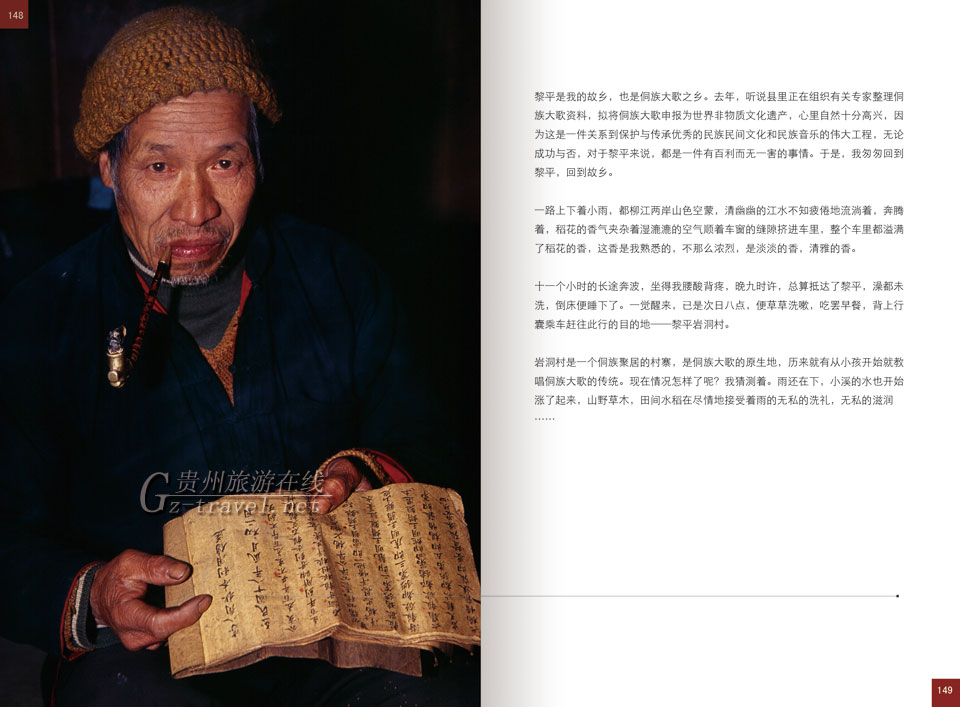 148
贵州旅游在线
Gz-travel.net
黎平是我的故乡，也是侗族大歌之乡。去年，听说县里正在组织有关专家整理侗
族大歌资料，拟将侗族大歌申报为世界非物质文化遗产，心里自然十分高兴，因
为这是一件关系到保护与传承优秀的民族民间文化和民族音乐的伟大工程，无论
成功与否，对于黎平来说，都是一件有百利而无一害的事情。于是，我匆匆回到
黎平，回到故乡。
一路上下着小雨，都柳江两岸山色空蒙，清幽幽的江水不知疲倦地流淌着，奔腾
着，稻花的香气夹杂着湿漉漉的空气顺着车窗的缝隙挤进车里，整个车里都溢满
了稻花的香，这香是我熟悉的，不那么浓烈，是淡淡的香，清雅的香。
十一个小时的长途奔波，坐得我腰酸背疼，晚九时许，总算抵达了黎平，澡都未
洗，倒床便睡下了。一觉醒来，已是次日八点，便草草洗嗽，吃罢早餐，背上行
囊乘车赶往此行的目的地——黎平岩洞村。
岩洞村是一个侗族聚居的村寨，是侗族大歌的原生地，历来就有从小孩开始就教
唱侗族大歌的传统。现在情况怎样了呢？我猜测着。雨还在下，小溪的水也开始
涨了起来，山野草木，田间水稻在尽情地接受着雨的无私的洗礼，无私的滋润
……
149